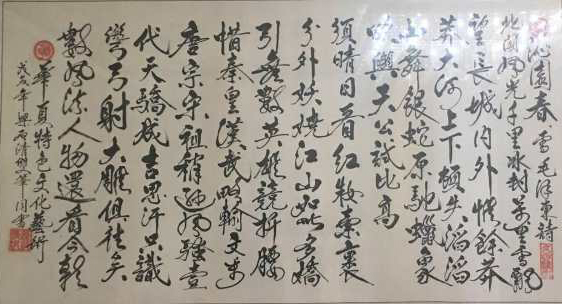 沁園春 雪 毛泽東詩
北國風光千里冰封萬里雪飄
望長城内外惟餘莽
莽大河上下頓失滔滔
山舞銀蛇原馳蠟象
欲與天公試比高
須晴日看紅妝素裹
分外妖嬈江山如此多嬌
引無數英雄競折腰
惜秦皇漢武略輸文采
唐宗宋祖稍遜風騷壹
代天驕成吉思汗只識
彎弓射大雕俱往矣
數風流人物還看今朝
華夏特色文化藝術